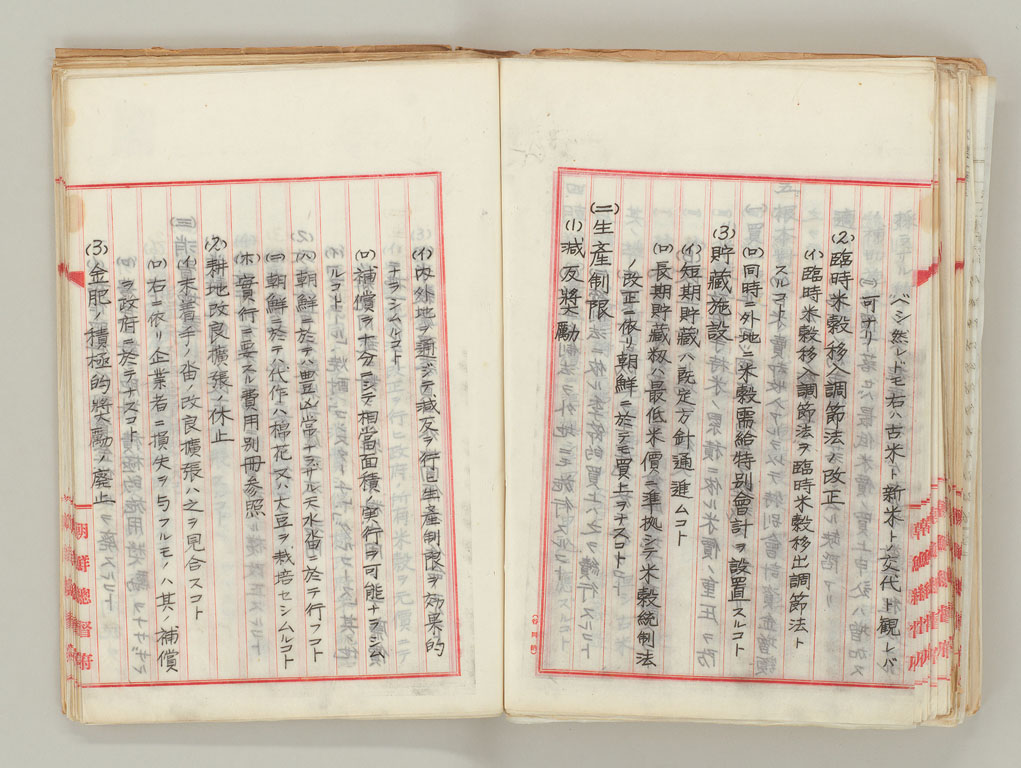 ベシ然レドモ右ハ古米ト新米トノ交代ト観レバ
可ナリ
(2)臨時米穀移入調節法ノ改正
(イ)臨時米穀移入調節法ヲ臨時米穀移出調節法ト
スルコト
(ロ)同時ニ外地ニ米穀需給特別會計ヲ設置スルコト
(3)貯藏施設
(イ)短期貯藏ハ既定方針通進ムコト
(ロ)長期貯藏籾ハ最低米價ニ準拠シテ米穀統制法
ノ改正ニ依リ朝鮮ニ於テモ買上ヲナスコト
(二)生產制限
(1)減反奬勵
(イ)内外地ヲ通ジテ減反ヲ行ヒ生產制限ヲ効果的
ナラシムルコト
(ロ)補償ヲ十分ニシテ相當面積ノ実行ヲ可能ナラシム
ルコト
(ハ)朝鮮ニ於テハ豊凶常ナラザル天水畓ニ於テ行フコト
(ニ)朝鮮ニ於テハ代作ハ棉花又ハ大豆ヲ栽培セシムルコト
(ホ)實行ニ要スル費用別冊参照
(2)耕地改良擴張ノ休止
(イ)未着手ノ畓ノ改良擴張ハ之ヲ見合スコト
(ロ)右ニ依リ企業者ニ損失ヲ与フルモノハ其ノ補償
ヲ政府ニ於テナスコト
(3)金肥ノ積極的奬勵ヲ廢止
朝鮮總督府